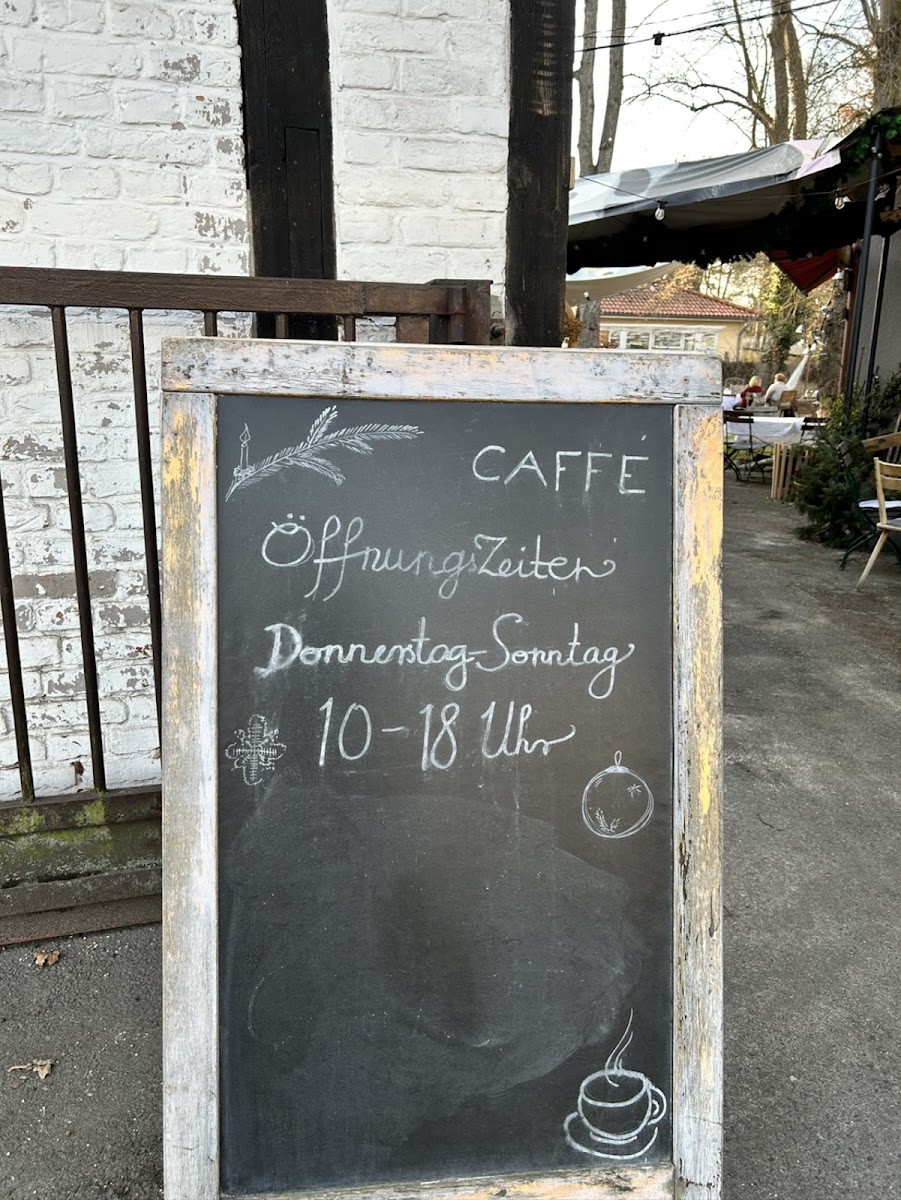 CAFFÉ
ÖffnungsZeiten
Donnerstag-Sonntag
10-18 Uhr